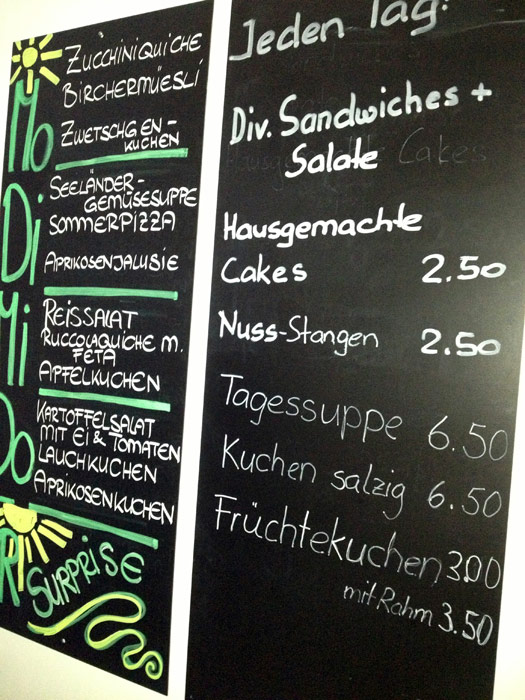 ZUCCHINIQUICHE
BIRCHERMÜESLI
ZWETSCHGEN-
KUCHEN
Mo
SEELÄNDER-
GEMÜSESUPPE
SOMMERPIZZA
APRIKOSENJALUSIE
Di
REISSALAT
RUCCOLAQUICHE M.
FETA
APFELKUCHEN
Mi
KARTOFFELSALAT
MIT EI & TOMATEN
LAUCHKUCHEN
APRIKOSENKUCHEN
Do
SURPRISE
Jeden Tag:
Div. Sandwiches +
Salate Cakes
Hausgemachte
Cakes 2.50
Nuss-Stangen 2.50
Tagessuppe 6.50
Kuchen salzig 6.50
Früchtekuchen 3.00
mit Rahm 3.50